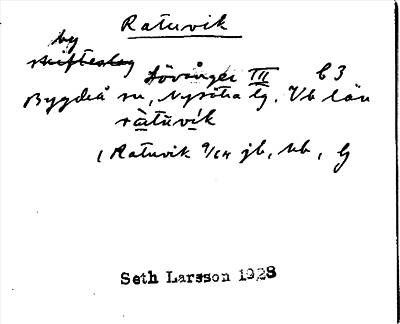 Ratuvik
by
skifteslag Lövånger III C 3
Bygdeå sn, Nysätra tg. Vb län
ràtŭvík
Ratuvik 9/64 jb,
Seth Larsson 1928